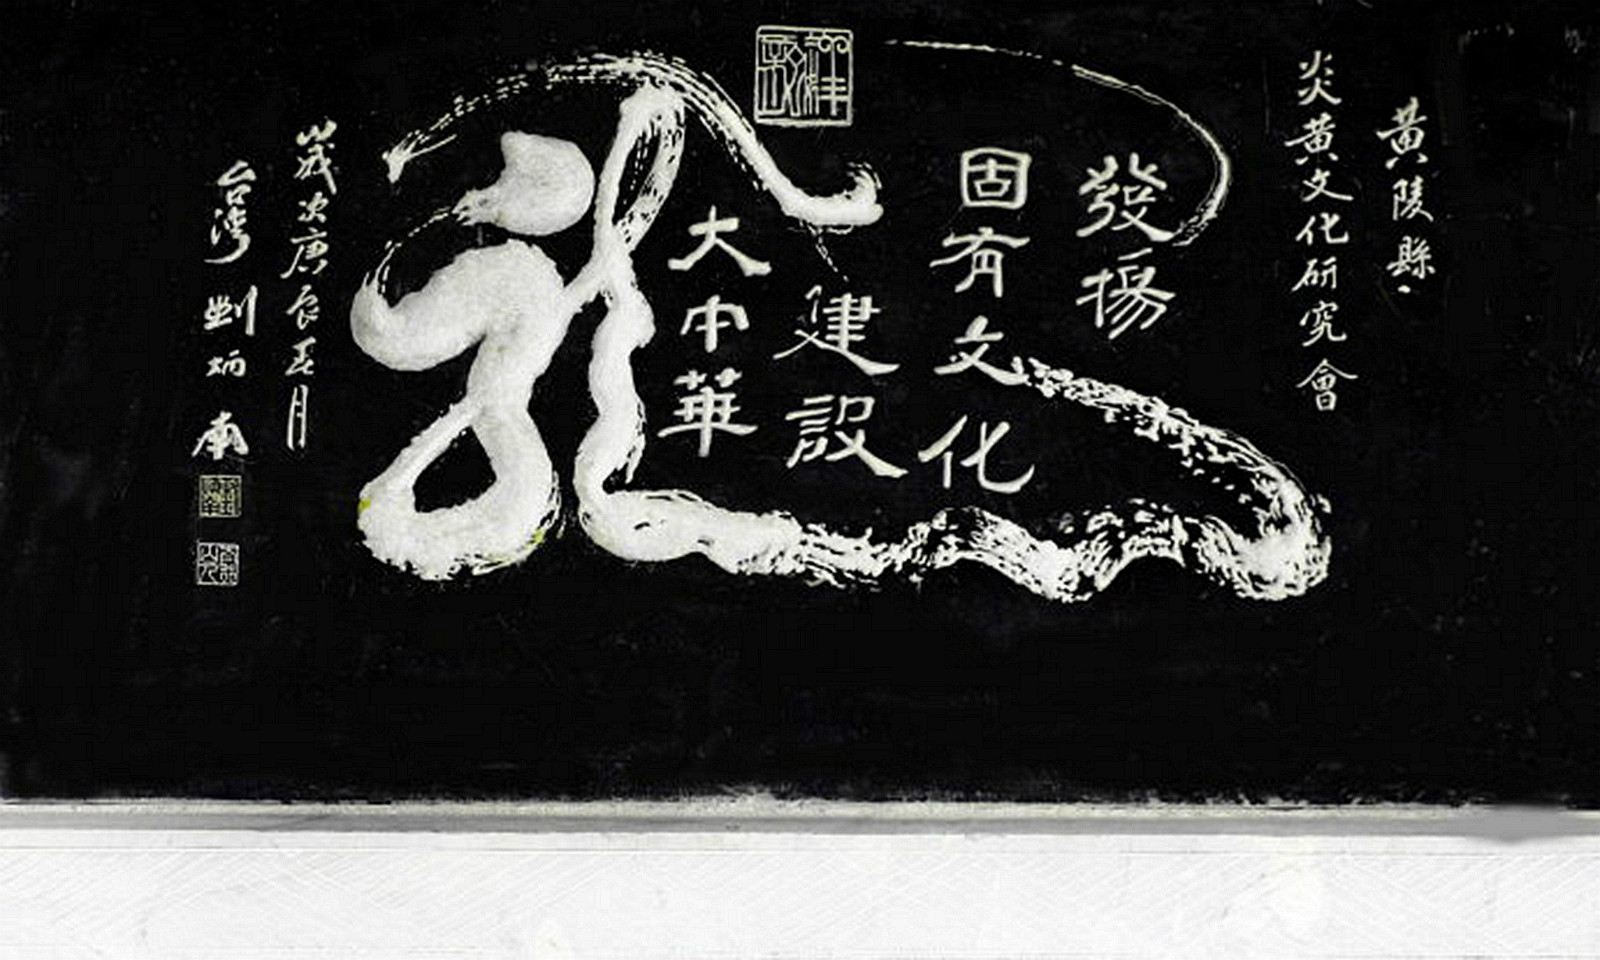 黄陵縣
炎黄文化研究會
發揚
固有文化
建設
大中華
龍
歲次庚辰五月
台灣劉炳南